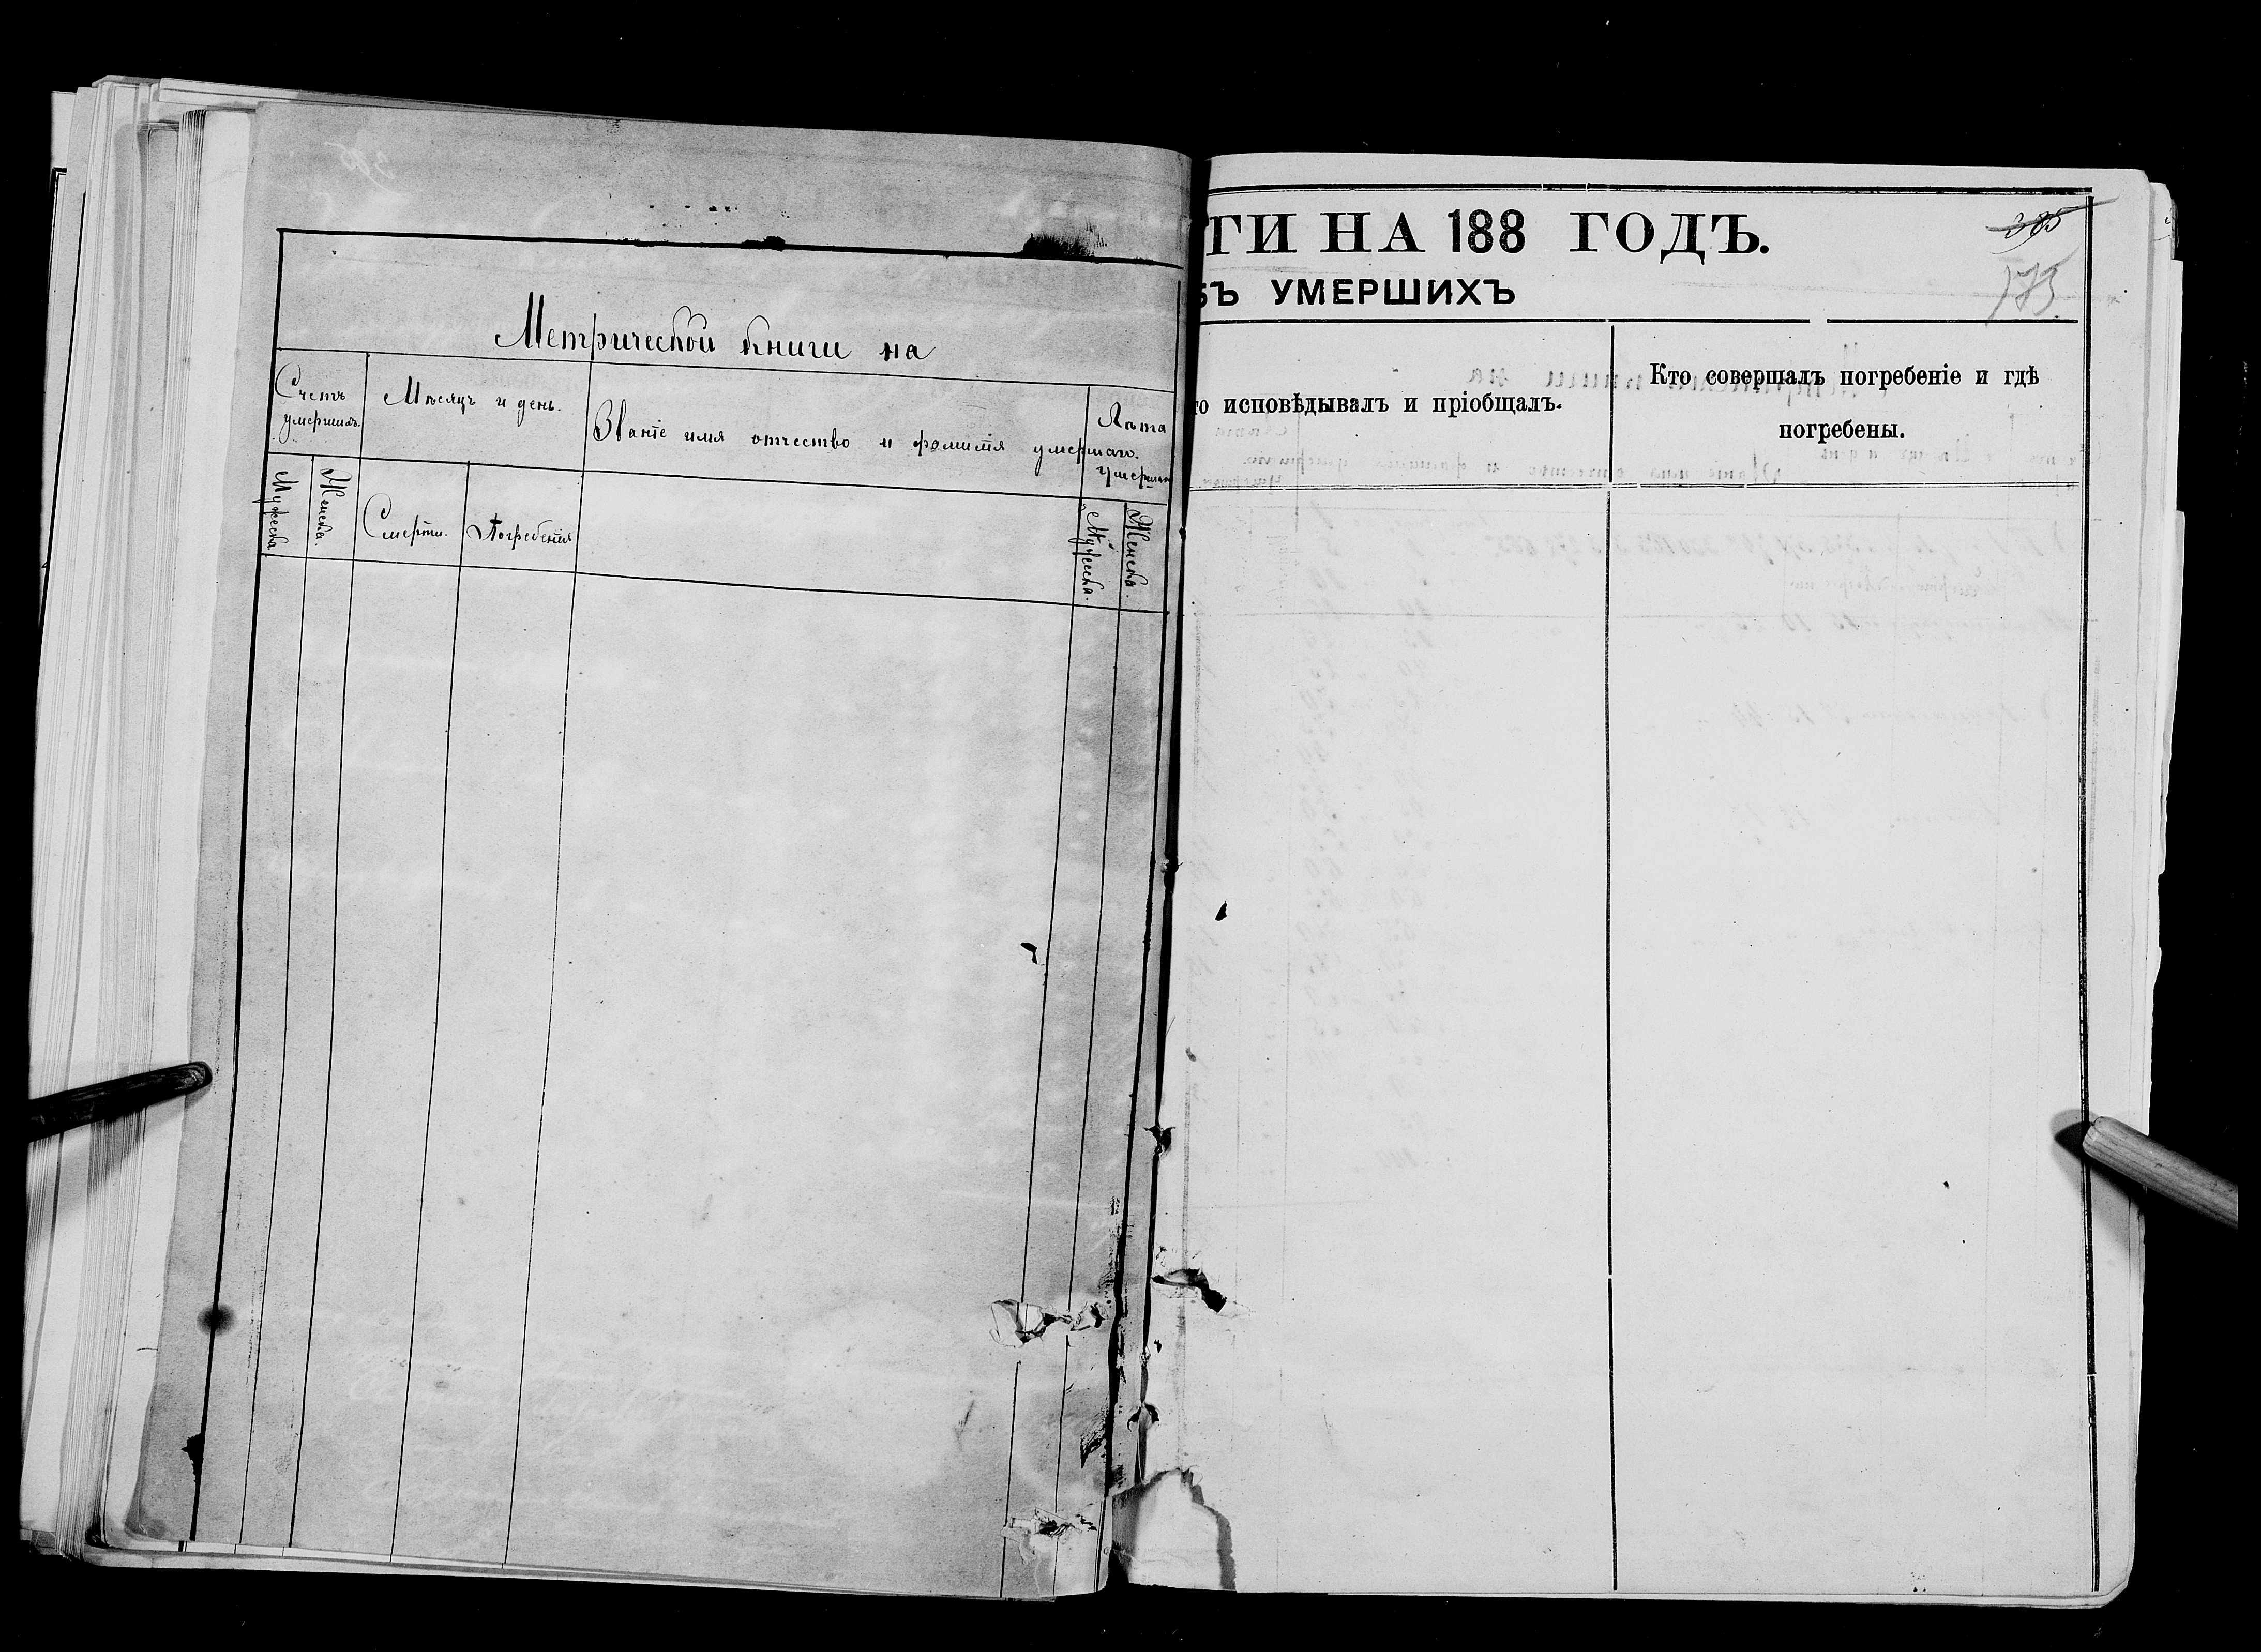 Метрической книги на
Счетъ умершихъ.
Мѣсяцъ и день.
Званіе имя отчество и фомилія умершаго.
Лѣта умершаго
Мужеска.
Женска.
Смерти.
Погребенія
Мужеска.
Женска.
ГИ НА 188 ГОДЪ.
385
173
Ъ УМЕРШИХЪ
то исповѣдывалъ и пріобщалъ.
Кто совершалъ погребеніе и гдѣ
погребены.